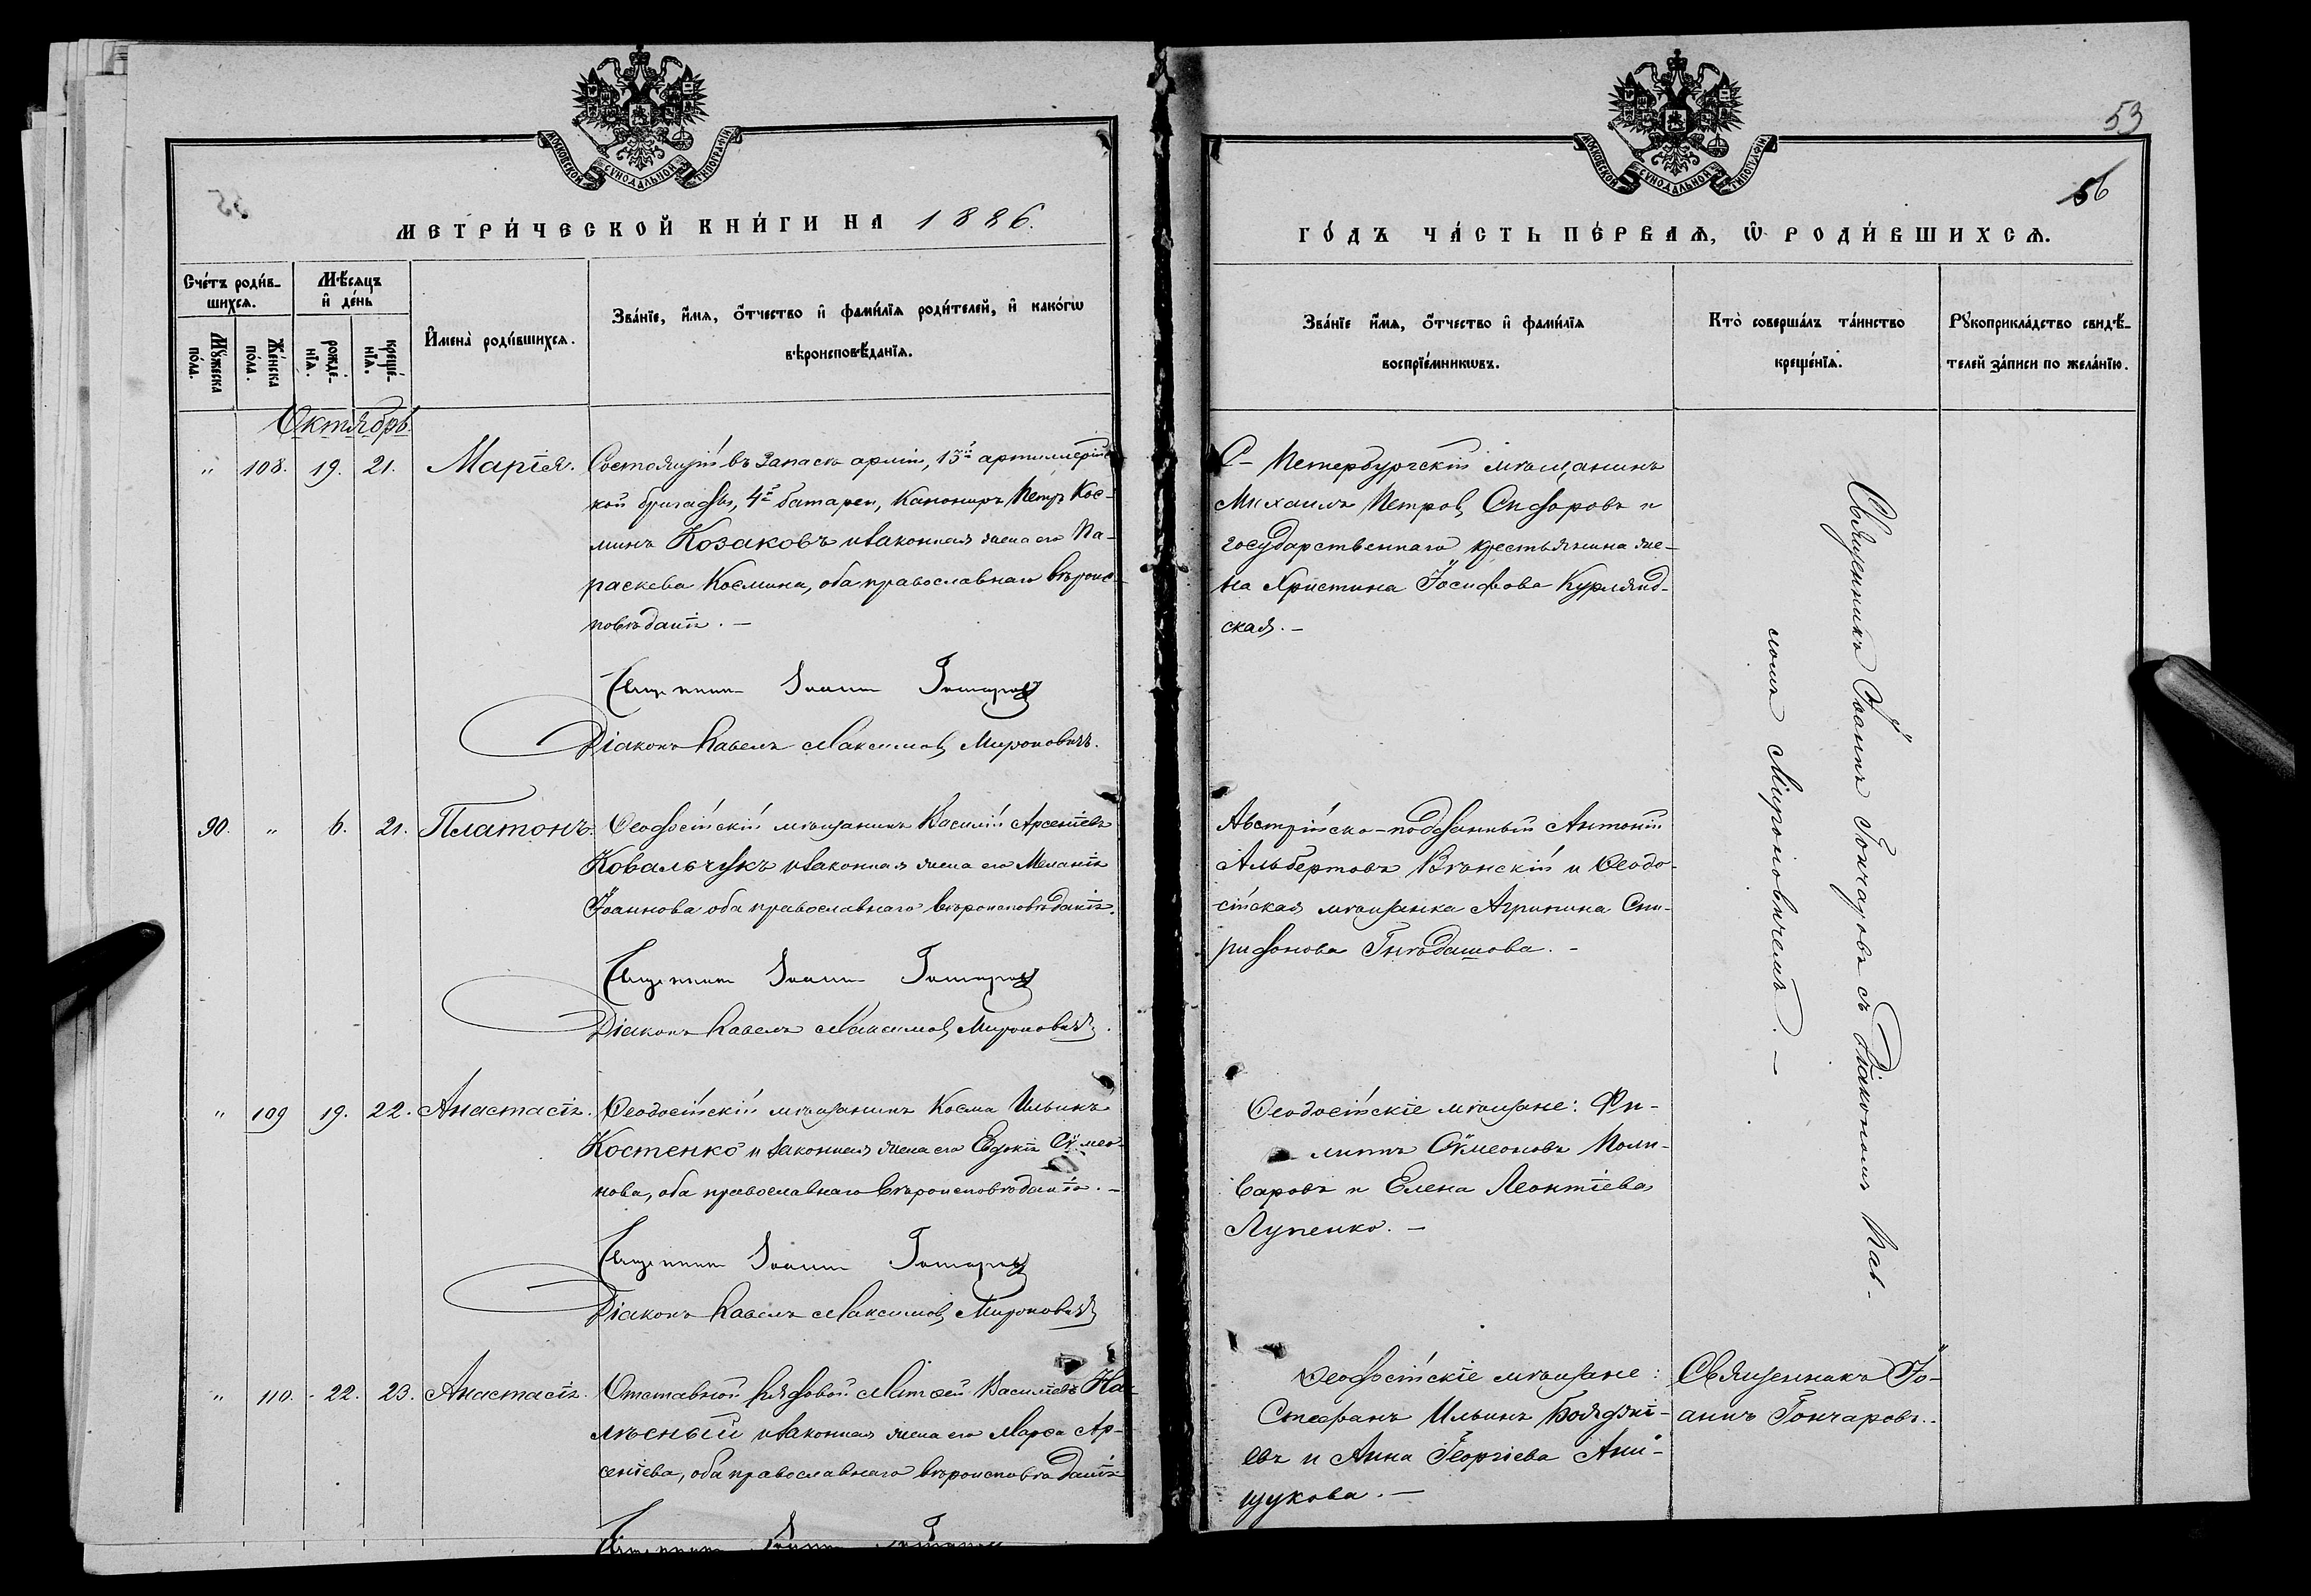 МОСКОВСКОЙ СУНОДАЛЬНОЙ ТИПОГРАФІИ
МЕТРИ́ЧЕСКОЙ КНИ́ГИ НА 1886.
Сче́тъ роди́в-
шихсѧ.
Мѣ́сѧцъ
и҆ де́нь
Мꙋ́жеска
по́ла.
Же́нска
по́ла.
рожде́-
нїѧ.
креще́-
нїѧ.
И҆мена̀ роди́вшихсѧ.
Зва́нїе, и҆́мѧ, ѻ҆́тчество и҆ фами́лїѧ роди́телей, и҆ како́гѡ
вѣроисповѣ́данїѧ.
Октябрь.
" 108. 19. 21. Марія. Состоящій въ Запасѣ арміи, 13й артиллерійс-
кой бригады, 4й батареи, Канониръ Петръ Кос-
минъ Козаковъ и законная жена его Па-
раскева Космина, оба православнаго вѣроис-
повѣданія. —
Священникъ Іоаннъ Гончаровъ
Діаконъ Павелъ Максимовъ Мироновичъ.
90. " 6. 21. Платонъ. Ѳеодосійскій мѣщанинъ Василій Арсеніевъ
Ковальчукъ и законная жена его Меланія
Іоаннова оба православнаго вѣроисповѣданія.
Священникъ Іоаннъ Гончаровъ
Діаконъ Павелъ Максимовъ Мироновичъ.
" 109 19. 22. Анастасія. Ѳеодосійскій мѣщанинъ Косма Ильинъ
Костенко и законная жена его Евдокія Сѵмео-
нова, оба православнаго вѣроисповѣданія. —
Священникъ Іоаннъ Гончаровъ
Діаконъ Павелъ Максимовъ Мироновичъ
" 110. 22. 23. Анастасія. Отставной рядовой Матѳей Василіевъ На-
лѣсный и законная жена его Марѳа Ар-
сеніева, оба православнаго вѣроисповѣданія
Священникъ Іоаннъ Гончаровъ
53
МОСКОВСКОЙ СУНОДАЛЬНОЙ ТИПОГРАФІИ
56
ГО́ДЪ ЧА́СТЬ ПЕ́РВАѦ, Ѡ҆ РОДИ́ВШИХСѦ.
Зва́нїе и҆́мѧ, ѻ҆́тчество и҆ фами́лїѧ
воспрїе́мникѡвъ.
Кто̀ соверша́лъ та́инство
креще́нїѧ.
Рꙋкоприкла́дство свидѣ́-
телей за́писи по жела́нїю.
С-Петербургскій мѣщанинъ
Михаилъ Петровъ Сидоровъ и
государственнаго крестьянина же-
на Христина Іосифова Курлянд-
ская. —
Священникъ Іоаннъ Гончаровъ съ Діакономъ Пав-
ломъ Мироновичемъ. —
Австрійско-подданный Антоній
Альбертовъ Вѣнскій и Ѳеодо-
сійская мѣщанка Агрипина Спи-
ридонова Гнѣдашова. —
Ѳеодосійскіе мѣщане: Фи-
липпъ Сѵмеоновъ Поли-
варовъ и Елена Леонтіева
Лупенко. —
Ѳеодосійскіе мѣщане:
Стефанъ Ильинъ Бояджі-
евъ и Анна Георгіева Ани-
щукова. —
Священникъ Іо-
аннъ Гончаровъ.